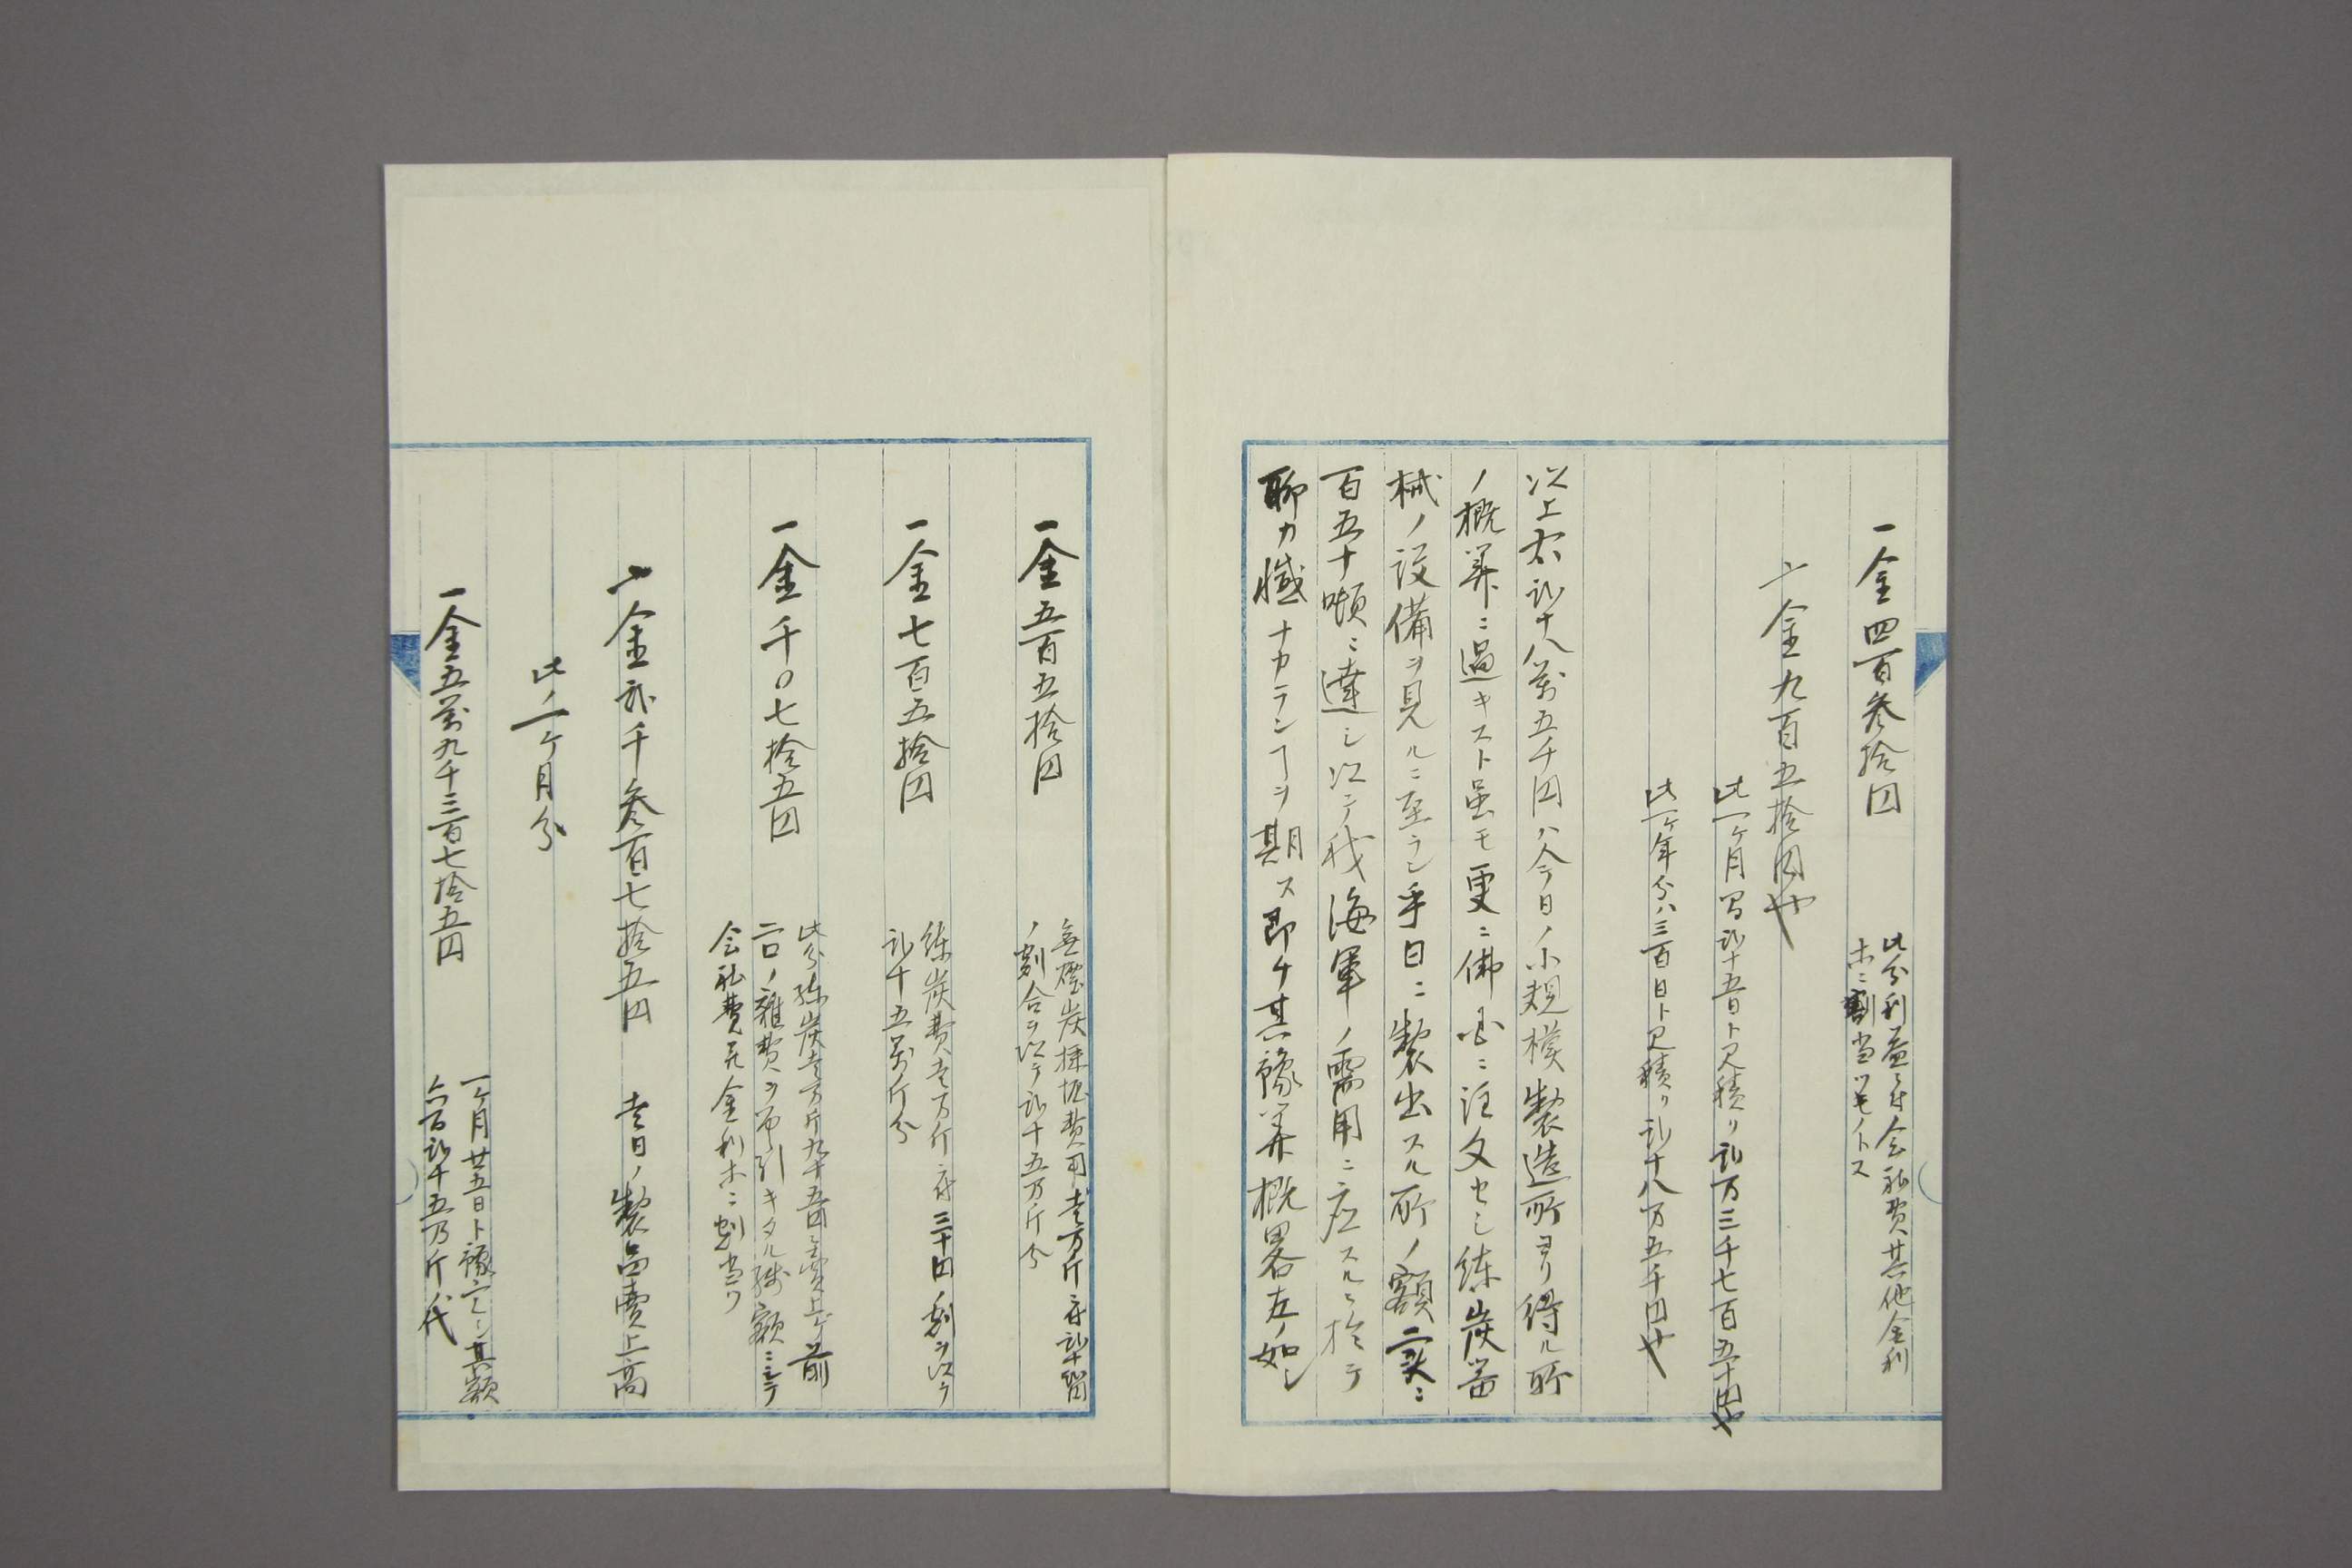 一金四百参拾円
此分利益ニ付会社費其他金利
ホニ割当ツモノトス
〆金九百五拾円也
此一ヶ月間弐十五日ト見積リ弐万三千七百五十円也
此一ヶ年分ハ三百日ト見積リ弐十八万五千円也
以上ノ弐十八萬五千円ハ今日ノ小規模製造所ヨリ得ル所
ノ概算ニ過キスト虽モ更ニ佛国ニ注文セシ練炭器
械ノ設備ヲ見ルニ至ラン乎日ニ製出スル所ノ額実ニ
百五十噸ニ達シ以テ我海軍ノ需用ニ応スルニ於テ
聊カ憾ナカランヿヲ期ス即チ其豫算概畧左ノ如シ
一金五百五拾円
無煙炭採掘費用壱万斤ニ付弐十弐円
ノ割合ヲ以テ弐十五万斤分
一金七百五拾円
練炭費壱万斤ニ付三十円ノ割ヲ以テ
弐十五万斤分
一金千〇七拾五円
此分練炭壱万斤九十五円ニ賣上ケ前
二口ノ雑費ヲ差引キタル残額ニシテ
会社費元金利ホニ割当ツ
〆金弐千参百七拾五円
壱日ノ製品賣上高
此ノ一ヶ月分
一金五萬九千三百七拾五円
一ヶ月廿五日ト豫定シ其額
六百弐十五万斤ノ代